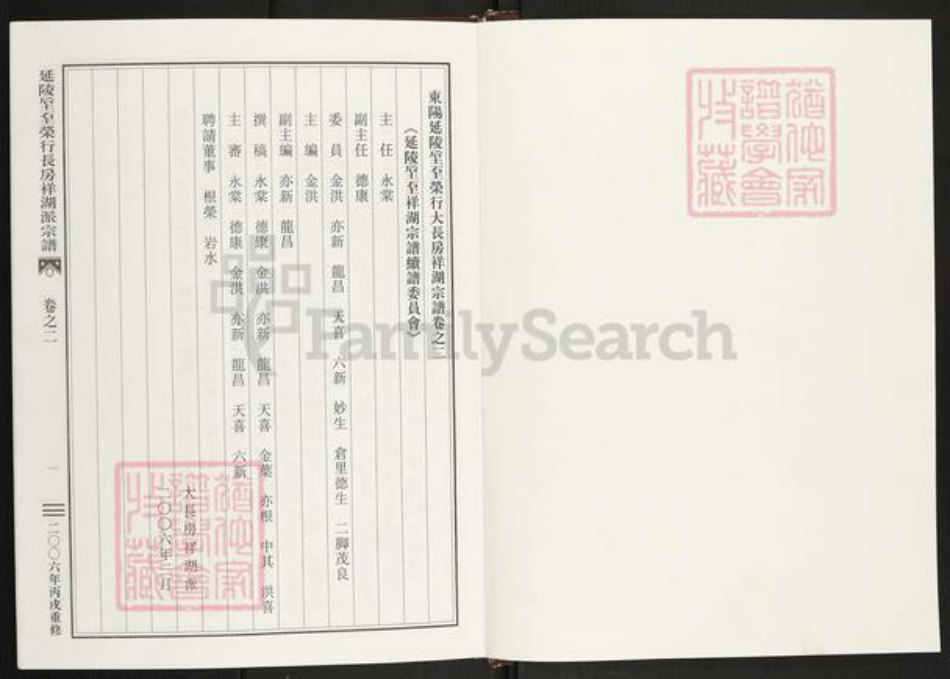 猶他家
譜學會
收藏
東陽延陵室至榮行大長房祥湖宗譜卷之二
《延陵室至祥湖宗譜續譜委員會》
主 任 永棠
副主任 德康
委 員 金洪 亦新 龍昌 天喜 六新 妙生 倉里德生 二腳茂良
主 編 金洪
副主編 亦新 龍昌
撰 稿 永棠 德康 金洪 亦新 龍昌 天喜 金葉 亦根 中其 洪喜
主 審 永棠 德康 金洪 亦新 龍昌 天喜 六新
聘請董事 根榮 岩水
大長房祥湖派
二〇〇六年二月
延陵室至榮行長房祥湖派宗譜 卷之二 一 二〇〇六年丙戌重修
FamilySearch